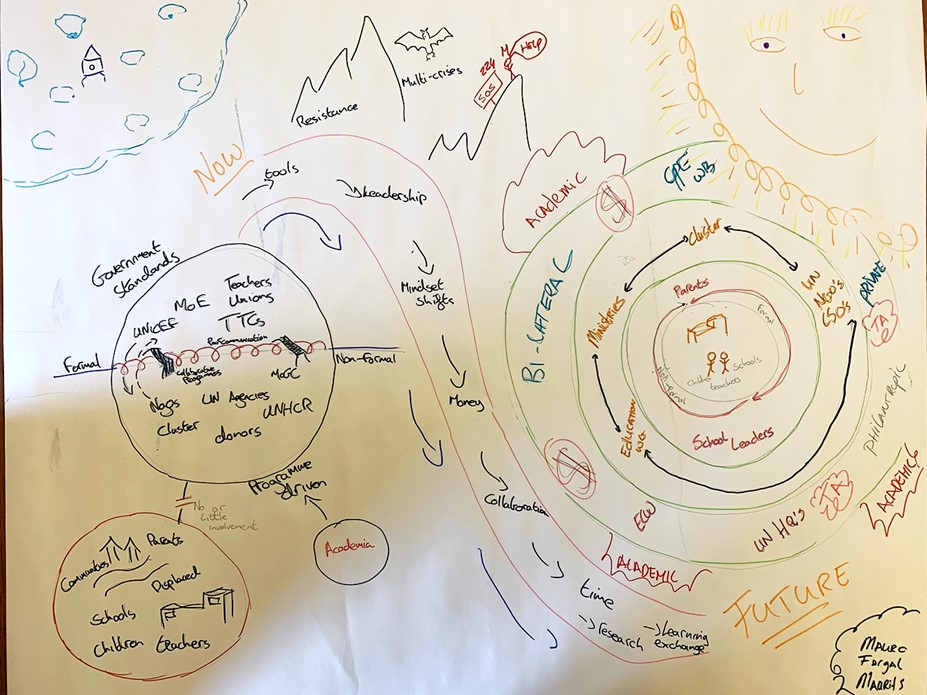 Resistance
Multi-crises
SOS
HELP
NOW
tools
Leadership
Mindset
Shifts
Money
Collaboration
time
→ research
→ Learning
exchange
Government
Standards
MoE
Teachers
Unions
TTCs
UNICEF
Formal
Non-formal
Collaborative
Programmes
Ngos
Cluster
UN Agencies
UNHCR
donors
Programme
driven
No or
Little
involvement
Academia
Communities
Parents
Displaced
Schools
Children
teachers
ACADEMIC
$
GPE
WB
BI-LATERAL
Cluster
Ministries
UN
NGO's
CSO's
PRIVATE
Parents
Formal
Schools
teachers
School Leaders
Education
WG
$
ECW
UN HQ's
ACADEMIC
ACADEMICS
FUTURE